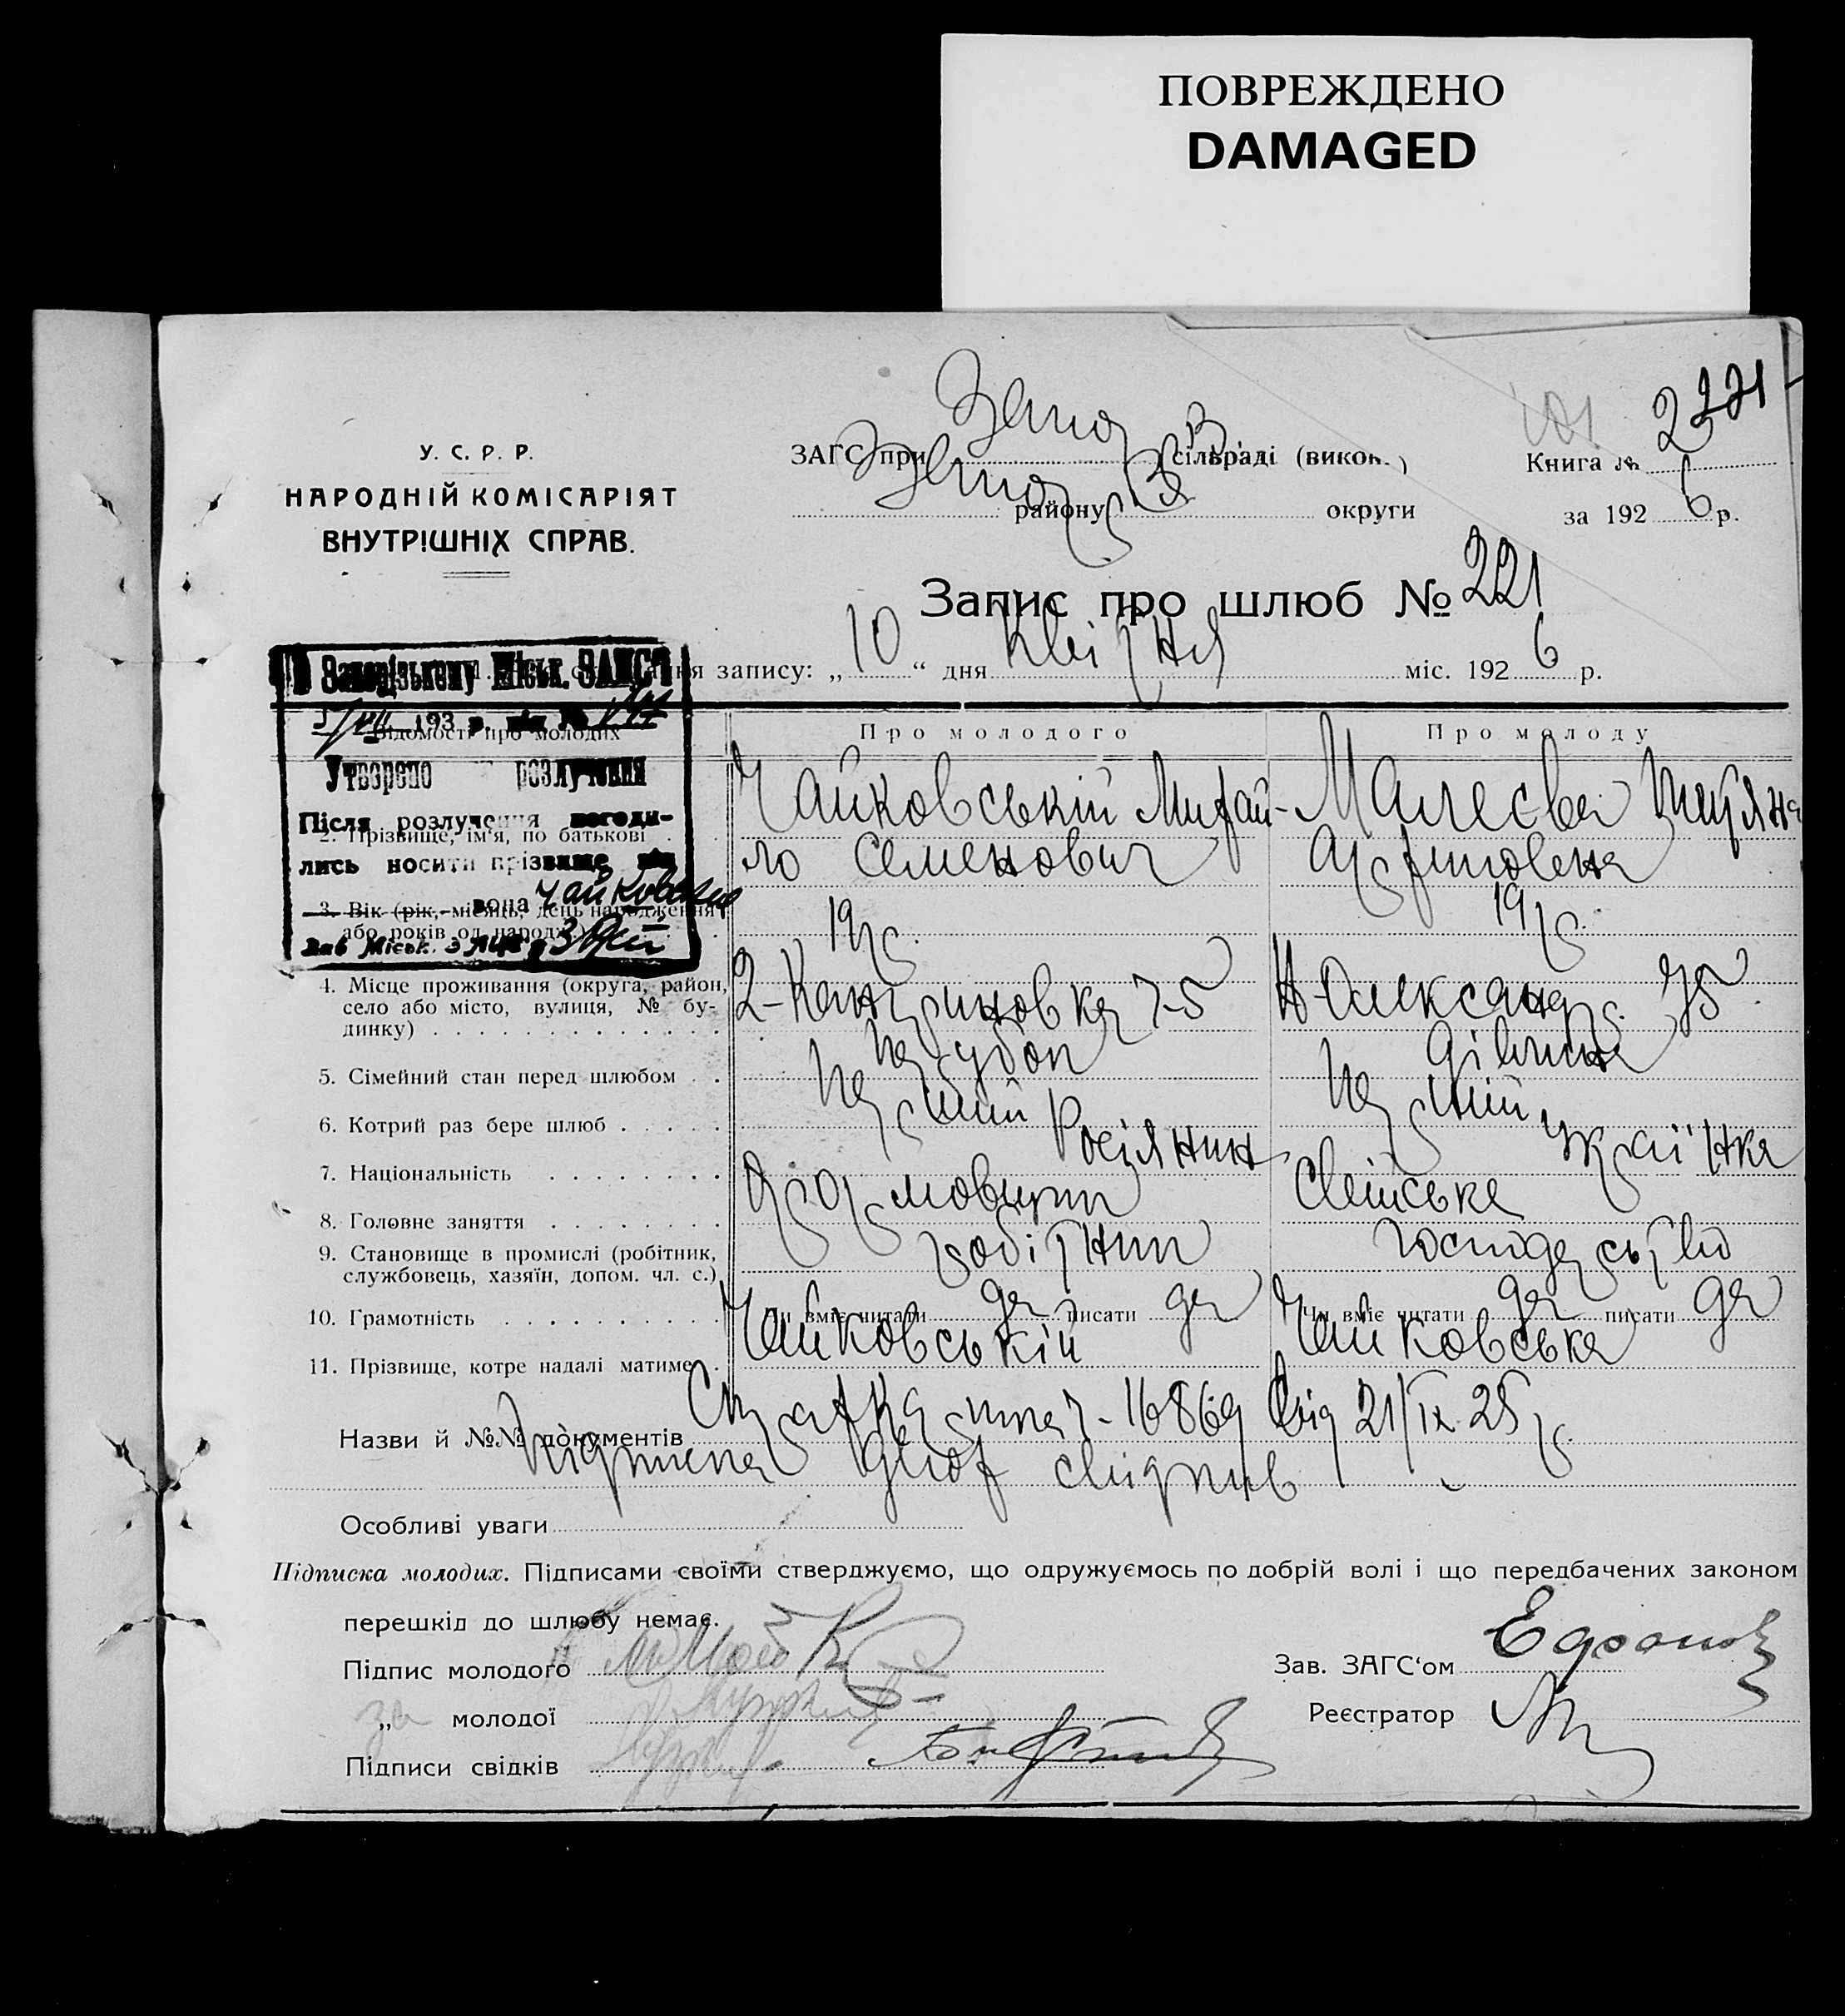 ПОВРЕЖДЕНО
DAMAGED
У. С. Р. Р.
НАРОДНІЙ КОМІСАРІЯТ
ВНУТРІШНІХ СПРАВ.
ЗАГС при сільраді (викон. )
району округи
Книга № 2
за 192 6 р.
Запис про шлюб № 221
запису: „ 10 “ дня Квітня міс. 192 6 р.
Запорізькому Міськ. ЗАГСІ
193 р. під №
Утворено розлучення
Після розлучення погоди-
лись носити прізвище він
вона Чайковська
Зав Міськ. ЗАГС
Відомості про молодих
Про молодого
Про молоду
2. Прізвище, ім'я, по батькові
Чайковській Михай-
ло Семенович
Малєєва Тетяна
3. Вік (рік, місяць, день народження
або років од народж.)
19 р.
19 р.
4. Місце проживання (округа, район,
село або місто, вулиця, № бу-
динку)
2-Кантуриновка 7-5
Н-Олександр. 75
5. Сімейний стан перед шлюбом
Парубок
Дівчина
6. Котрий раз бере шлюб
Перший
Перший
7. Національність
Росіянин
Українка
8. Головне заняття
Сільське
9. Становище в промислі (робітник,
службовець, хазяїн, допом. чл. с.)
робітник
господарство
10. Грамотність
Чи вміє читати да писати да
Чи вміє читати да писати да
11. Прізвище, котре надалі матиме
Чайковській
Чайковська
Назви й №№ документів
16869 від 21/ІХ 25 р.
підписка двох свідків
Особливі уваги
Підписка молодих. Підписами своїми стверджуємо, що одружуємось по добрій волі і що передбачених законом
перешкід до шлюбу немає.
Підпис молодого
Зав. ЗАГС‘ом
за „ молодої
Реєстратор
Підписи свідків